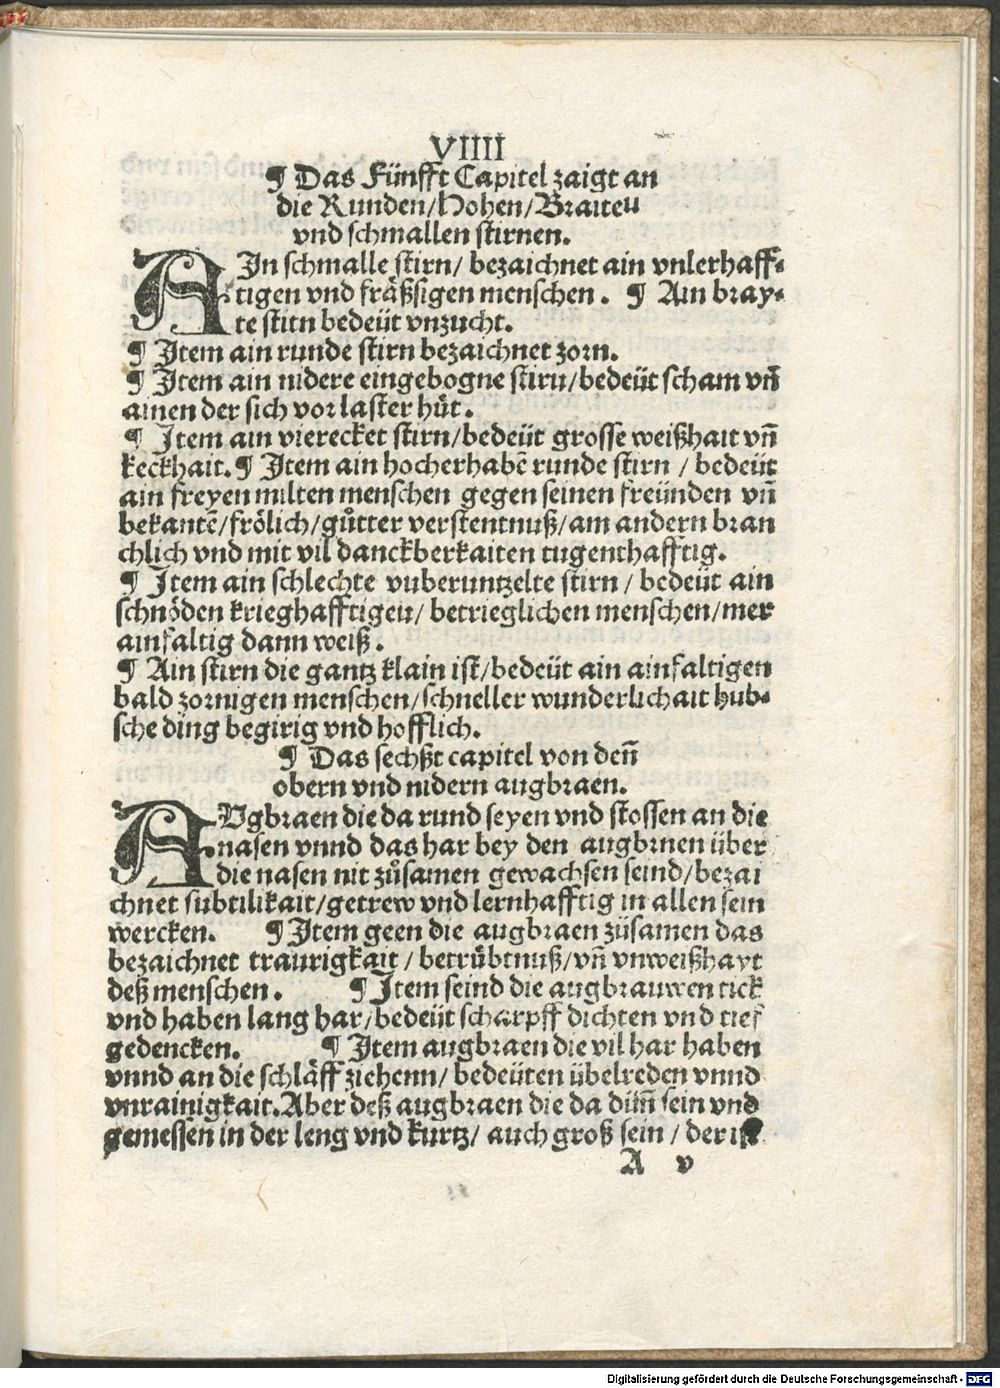 VIIII
¶ Das Fünfft Capitel zaigt an
die Runden/Hohen/Braiteu
vnd schmallen stirnen.
AIn schmalle stirn/ bezaichnet ain vnlerhaff⸗
tigen vnd fräßsigen menschen. ¶ Ain bray⸗
te stirn bedeüt vnzucht.
¶ Item ain runde stirn bezaichnet zorn.
¶ Item ain nidere eingebogne stirn/bedeüt scham vn̄
ainen der sich vor laster hüt.
¶ Item ain vierecket stirn/bedeüt grosse weißhait vn̄
keckhait. ¶ Item ain hocherhabē runde stirn / bedeüt
ain freyen milten menschen gegen seinen freünden vn̄
bekantē/frölich/gůtter verstentnuß/am andern bran
chlich vnd mit vil danckberkaiten tugenthafftig.
¶ Item ain schlechte vuberuntzelte stirn / bedeüt ain
schnöden krieghafftigeu/ betrieglichen menschen/mer
ainfaltig dann weiß.
¶ Ain stirn die gantz klain ist/bedeüt ain ainfaltigen
bald zornigen menschen/schneller wunderlichait hub⸗
sche ding begirig vnd hofflich.
¶ Das sechßt capitel von den̄
obern vnd nidern augbraen.
AVgbraen die da rund seyen vnd stossen an die
nasen vnnd das har bey den augbrnen über
die nasen nit zůsamen gewachsen seind/bezai
chnet subtilikait/getrew vnd lernhafftig in allen sein
wercken. ¶ Item geen die augbraen züsamen das
bezaichnet traurigkait / betrübtnuß/vn̄ vnweißhayt
deß menschen. ¶ Item seind die augbrauwen tick
vnd haben lang har/bedeüt scharpff dichten vnd tief
gedencken. ¶ Item augbraen die vil har haben
vnnd an die schläff ziehenn/ bedeüten übelreden vnnd
vnrainigkait. Aber deß augbraen die da dün̄ sein vnd
gemessen in der leng vnd kurtz/ auch groß sein / der ist
A v
Digitalisierung gefördert durch die Deutsche Forschungsgemeinschaft - DFG